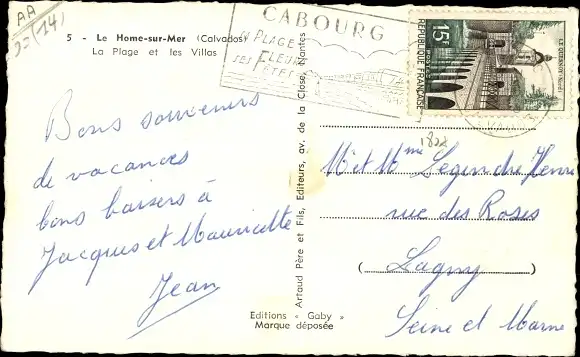 AA
5 - Le Home-sur-Mer (Calvados)
La Plage et les Villas
CABOURG
SA PLAGE
SES FÊTES
15F
POSTES
RÉPUBLIQUE FRANÇAISE
LE QUESNOY (Nord)
Bons souvenirs
de vacances
bons baisers à
Jacques et Mauricette
Jean
Artaud Père et Fils, Editeurs, av. de la Close, Nantes
Editions « Gaby »
Marque déposée
M et Mme Legendre Henri
rue des Roses
( Lagny )
Seine et Marne